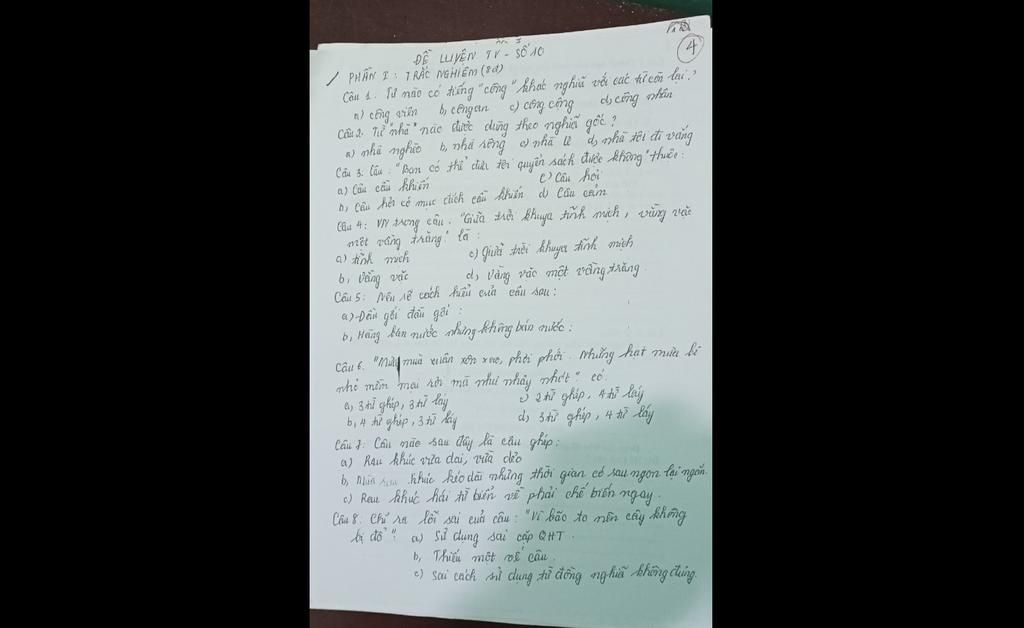 4
ĐỀ LUYỆN TV - SỐ 10
PHẦN I: TRẮC NGHIỆM (8đ)
Câu 1. Từ nào có tiếng "công" khác nghĩa với các từ còn lại?
a) công viên b, công an c) công cộng d, công nhân
Câu 2. Từ "nhà" nào được dùng theo nghĩa gốc?
a) nhà nghèo b, nhà rông c) nhà Lê d, nhà tôi đi vắng
Câu 3: Câu: "Bạn có thể đưa tôi quyển sách được không" thuộc:
a) Câu cầu khiến c) Câu hỏi
b, Câu hỏi có mục đích cầu khiến d) Câu cảm
Câu 4: VN trong câu: "Giữa trời khuya tĩnh mịch, vằng vặc
một vầng trăng." là:
a) tĩnh mịch c) Giữa trời khuya tĩnh mịch
b, Vằng vặc d, Vằng vặc một vầng trăng.
Câu 5: Nêu rõ cách hiểu của câu sau:
a) Đầu gối đầu gối:
b, Hàng bán nước nhưng không bán nước:
Câu 6. "Mưa mùa xuân xôn xao, phơi phới. Những hạt mưa bé
nhỏ mềm mại rơi mà như nhảy nhót". có.
a, 3 từ ghép, 3 từ láy c) 2 từ ghép, 4 từ láy
b, 4 từ ghép, 3 từ láy d, 3 từ ghép, 4 từ láy
Câu 7: Câu nào sau đây là câu ghép:
a) Rau khúc vừa dai, vừa dẻo
b, rau khúc kéo dài những thời gian có sau ngọn lại ngắn.
c) Rau khúc hái từ biển về phải chế biến ngay.
Câu 8. Chỉ ra lỗi sai của câu: "Vì bão to nên cây không
bị đổ" a) Sử dụng sai cặp QHT.
b, Thiếu một vế câu.
c) Sai cách sử dụng từ đồng nghĩa không đúng.